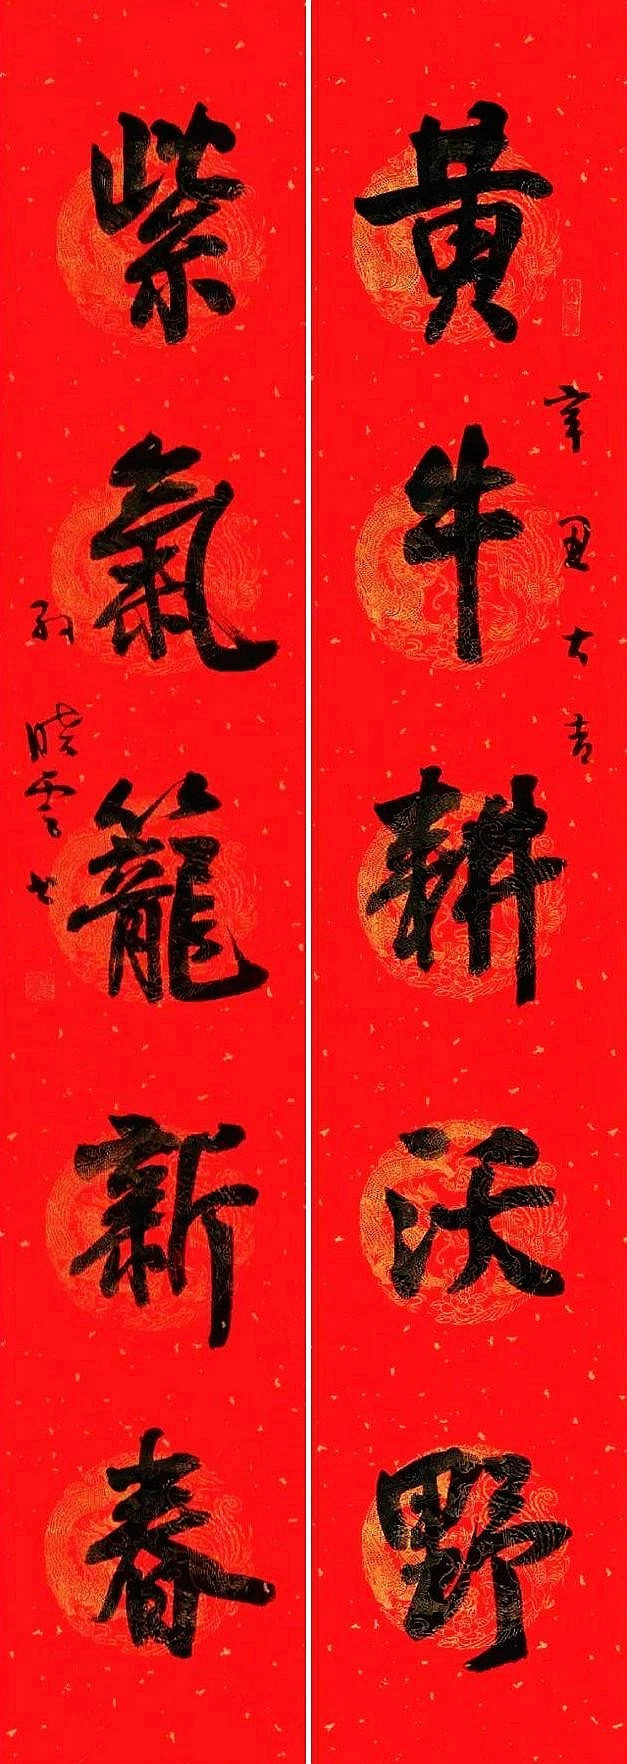 黄牛耕沃野
辛丑大吉
紫氣籠新春
孙晓云书